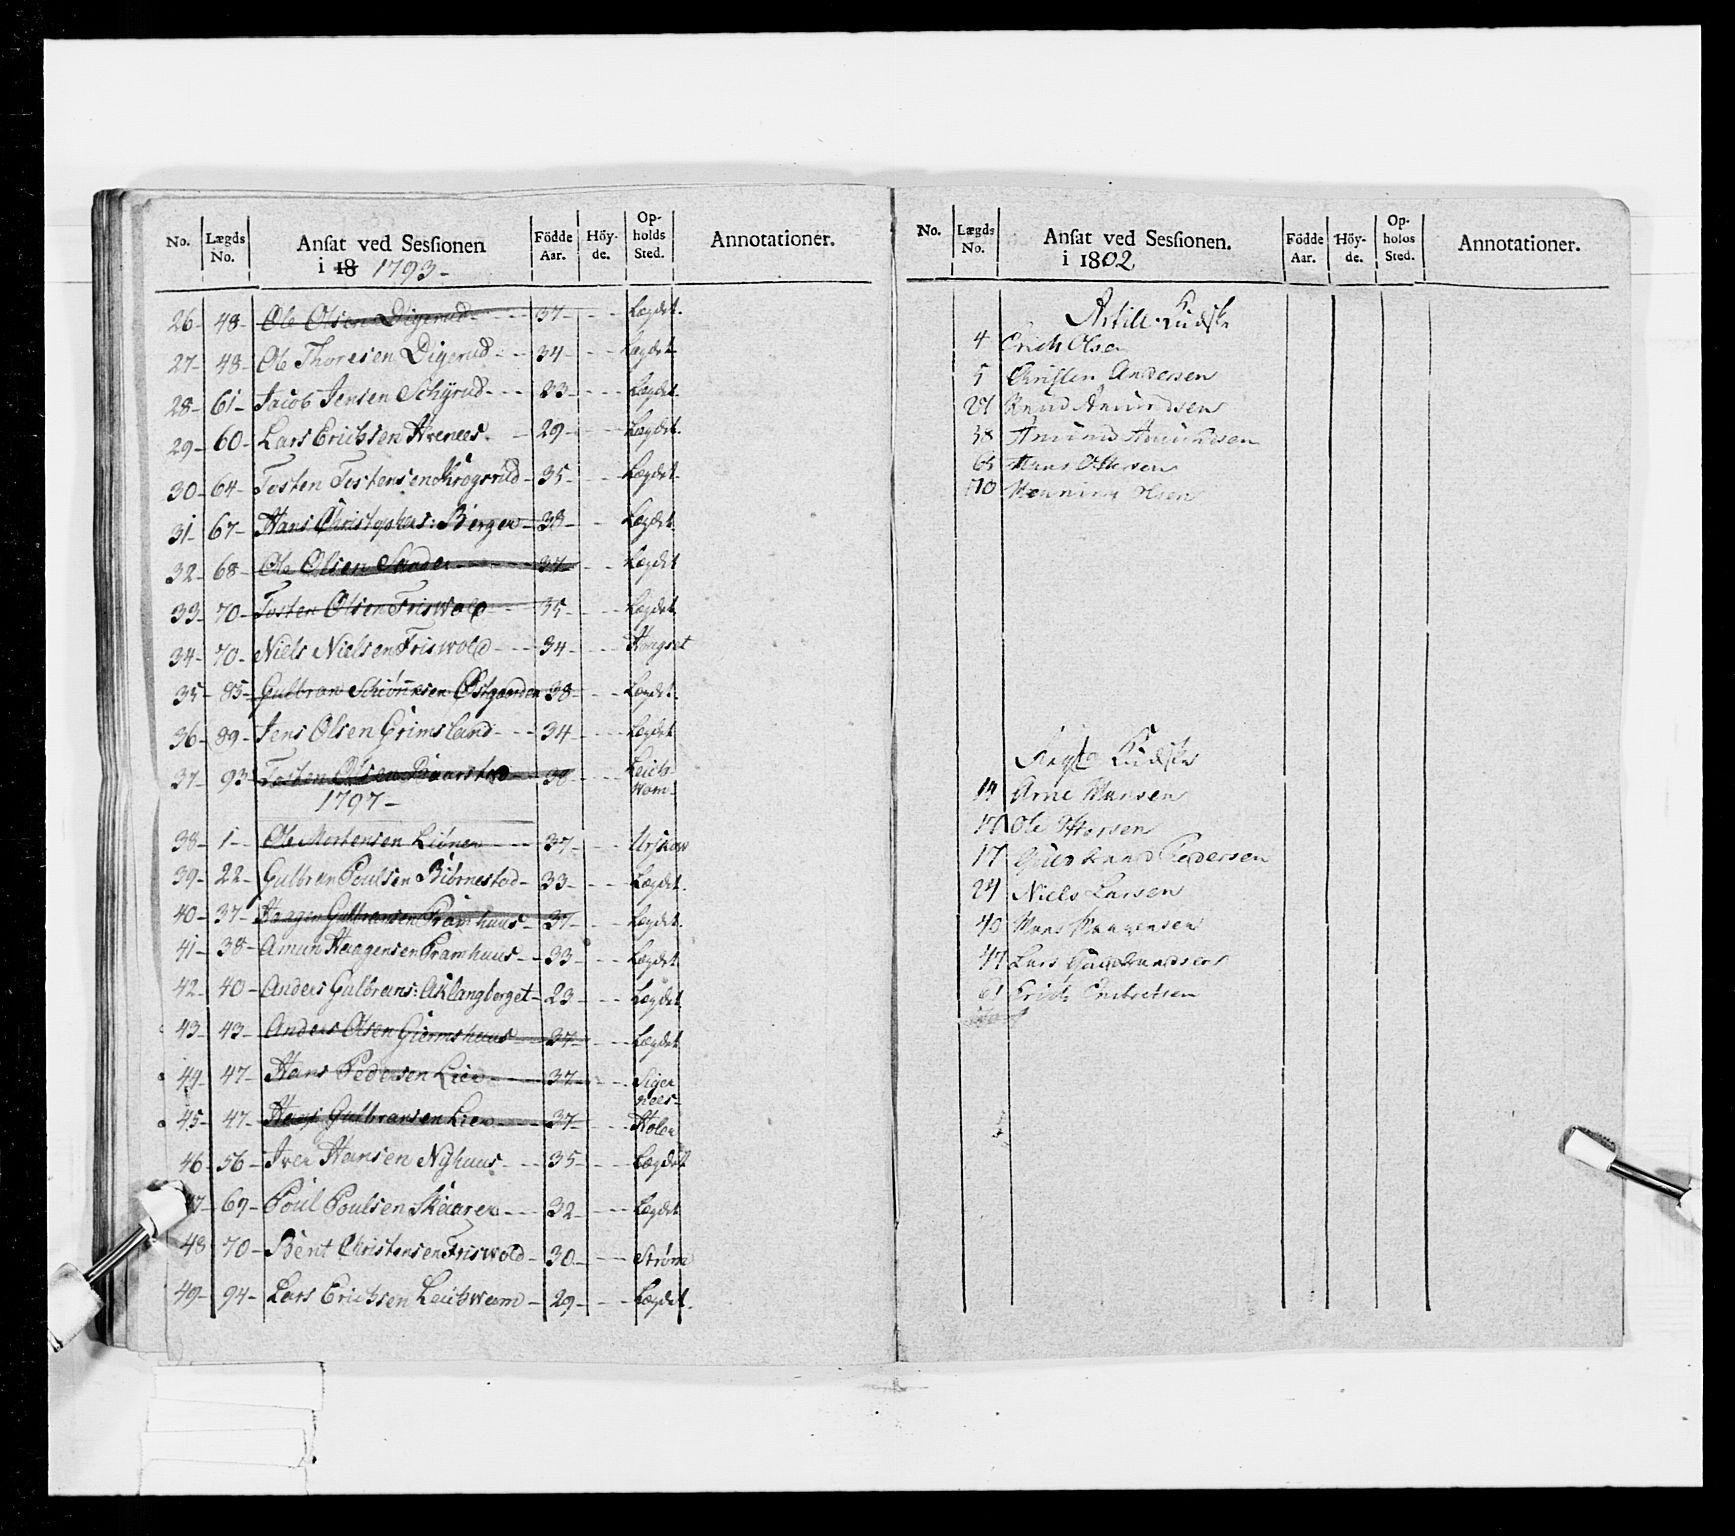 No. Lægds No. Ansat ved Sessionen i 18 1793- Födde Aar. Höy-de. Op-holds Sted. Annotationer.
26- 48- Ole Olsen Digerud - 37- Lægdet.
27- 48- Ole Thoresen Digerud - 34- Lægdet
28- 61- Jacob Jensen Schÿrud - 33- Lægdet.
29- 60- Lars Erichsen - 29- Lægdet.
30- 64- Tosten Tostensen Krogsrud - 35- Lægdet.
31- 67- Hans Christophers: Berger - 38- Lægdet.
32- 68- Ole Olsen Sander - 37- Lægdet
33- 70- Tosten Olsen Friswold - 35- Lægdet.
34- 70- Niels Nielsen Friswold - 34-
35- 85- Gulbran Østgaarden 38- Lægdet.
36- 89- Jens Olsen Grimsland - 34- Lægdet
37- 93- Tosten Olsen - 38-
1797-
38- 1- Ole Mortensen Liønen - 37- Urskow
39- 22- Gulbran Poulsen Biørnestad - 33- Lægdet.
40- 37- Haagen Gulbransen Framhuus - 37- Lægdet.
41- 38- Amun Haagensen Framhuus - 33- Lægdet
42- 40- Anders Gulbrans: Aklangberget - 23- Lægdet
43- 43- Anders Olsen Giermshuus - 37- Lægdet
44- 47- Hans Pedersen Lier - 37-
45- 47- Gulbransen Lier - 37- Holen
46- 56- Iver Hansen Nÿhuus - 35- Lægdet
69- Poul Poulsen Skaaren - 32- Lægdet
48 70- Berit Christensen Friswold - 30- Strøm
49- 94- Lars Erichsen - 29- Lægdet.
No. Lægds No. Ansat ved Sessionen. i 1802 Födde Aar. Höy-de. Op-holds Sted. Annotationer.
Artill: Kudske
4 Erich Olsen
5 Christen Andersen
Knud Amundsen
38 Amund Amundsen
65 Hans Ottersen
70 Henning Olsen
Kudske
14 Arne Hansen
Ole Ottersen
17 Gudbrand Pedersen
24 Niels Larsen
40 Hans Haagensen
47 Lars Gudbrandsen
61 Erich Embretsen